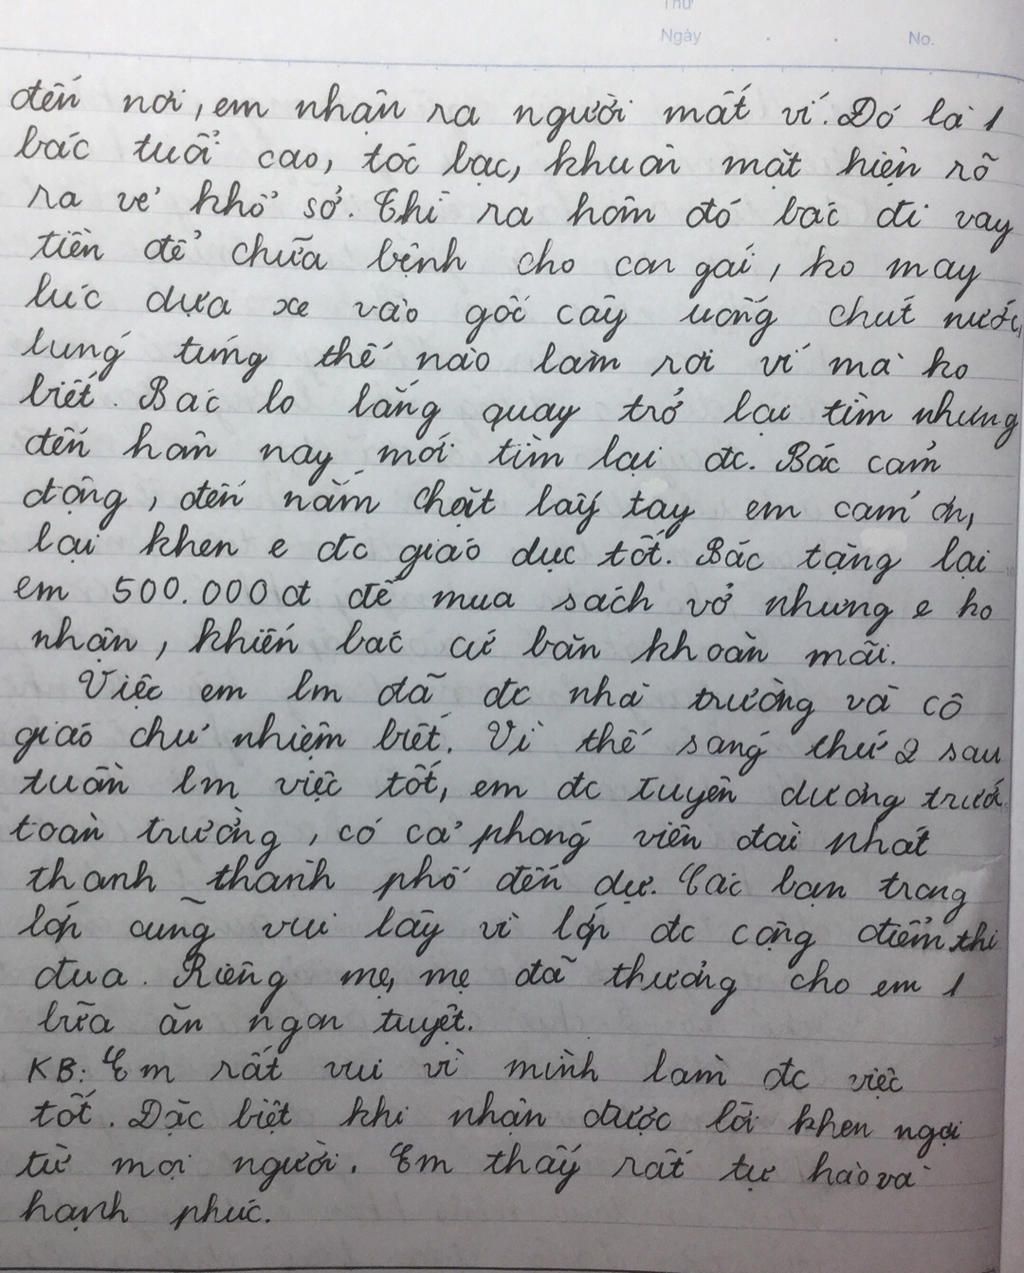 Thứ
Ngày . . No.
đến nơi, em nhận ra người mất ví. Đó là 1
bác tuổi cao, tóc bạc, khuôn mặt hiện rõ
ra vẻ khổ sở. Thì ra hôm đó bác đi vay
tiền để chữa bệnh cho con gái, ko may
lúc dựa xe vào gốc cây uống chút nước,
lúng túng thế nào làm rơi ví mà ko
biết. Bác lo lắng quay trở lại tìm nhưng
đến hôm nay mới tìm lại đc. Bác cảm
động, đến nắm chặt lấy tay em cám ơn,
lại khen e đc giáo dục tốt. Bác tặng lại
em 500.000đ để mua sách vở nhưng e ko
nhận, khiến bác cứ băn khoăn mãi.
Việc em lm đã đc nhà trường và cô
giáo chủ nhiệm biết. Vì thế sáng thứ 2 sau
tuần lm việc tốt, em đc tuyên dương trước
toàn trường, có cả phóng viên đài phát
thanh thành phố đến dự. Các bạn trong
lớp cũng vui lây vì lớp đc cộng điểm thi
đua. Riêng mẹ, mẹ đã thưởng cho em 1
bữa ăn ngon tuyệt.
KB: Em rất vui vì mình làm đc việc
tốt. Đặc biệt khi nhận được lời khen ngợi
từ mọi người. Em thấy rất tự hào và
hạnh phúc.